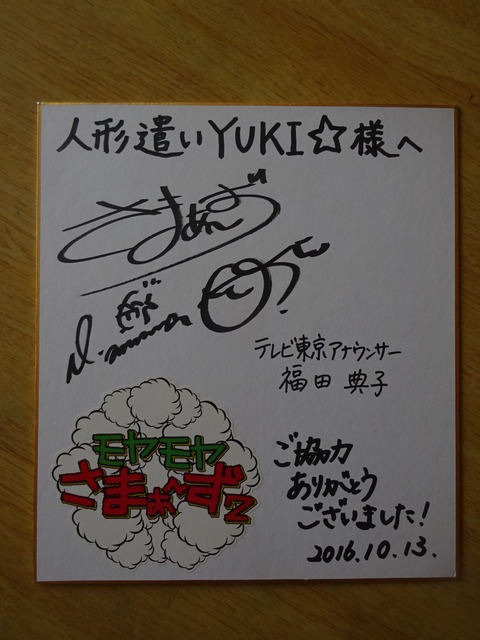 人形遣いYUKI☆様へ
さまぁ〜ず
テレビ東京アナウンサー
福田 典子
モヤモヤ
さまぁ〜ず2
ご協力
ありがとう
ございました!
2016.10.13.